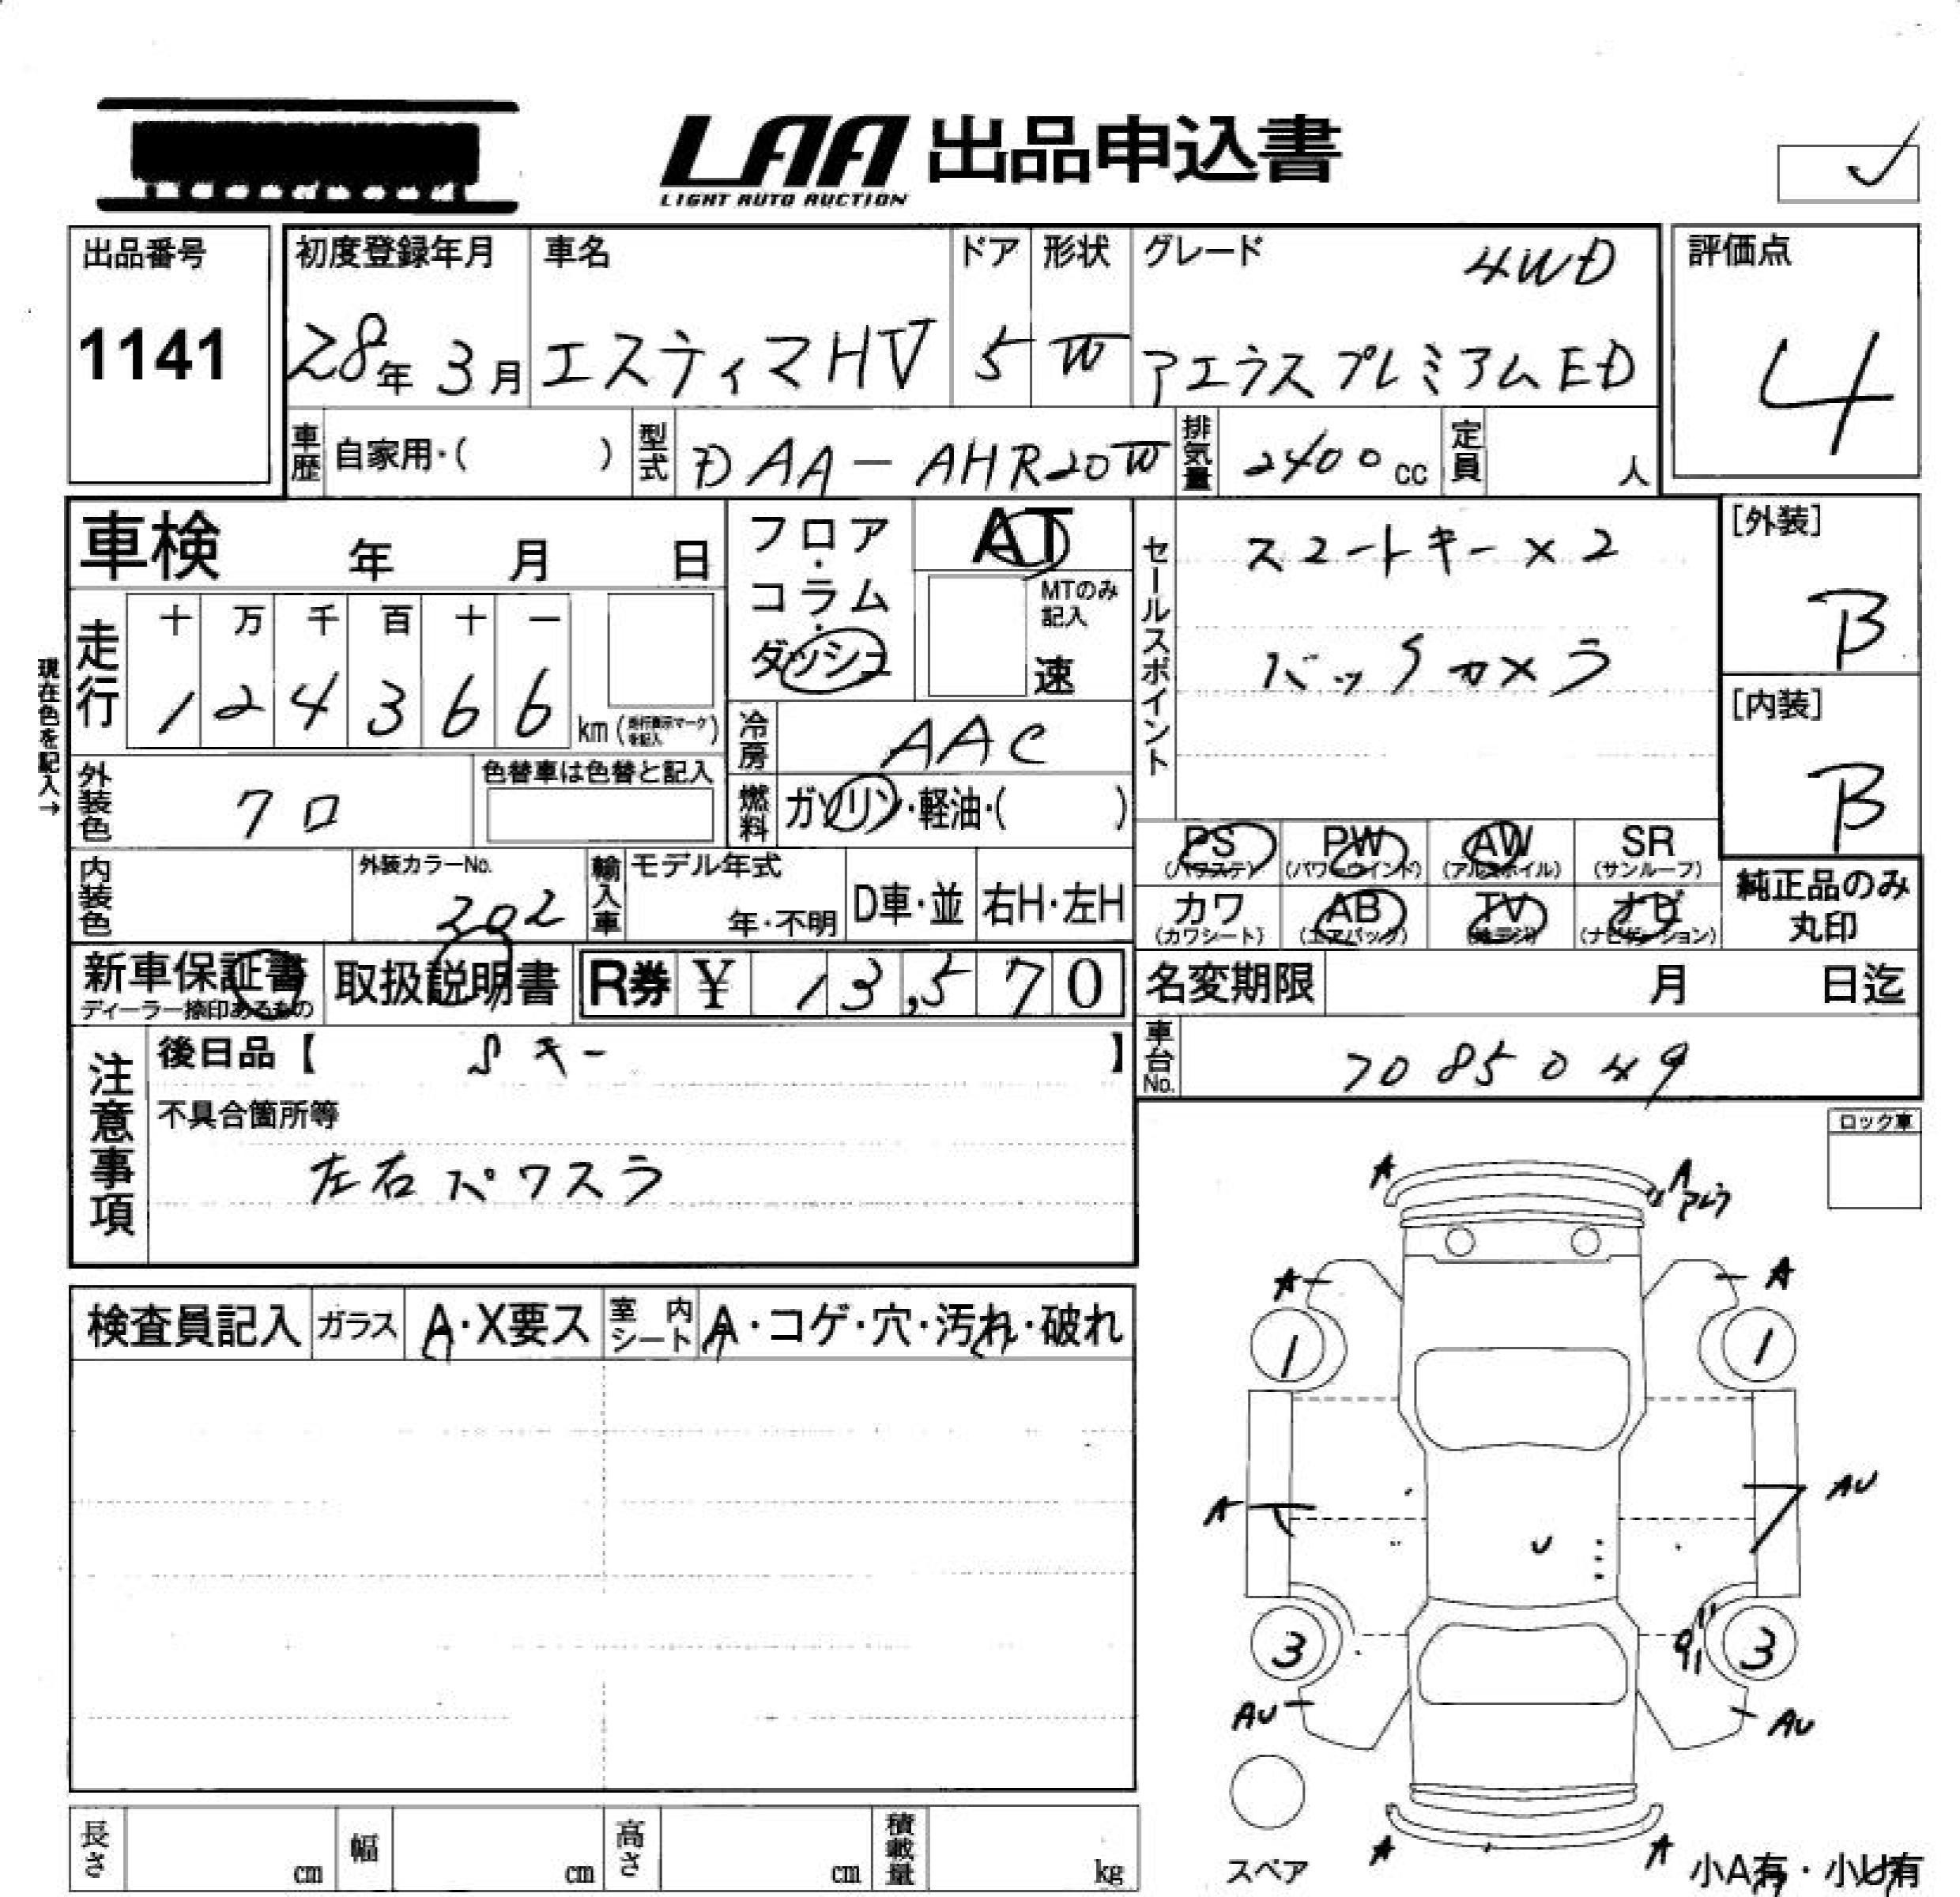 LAA 出品申込書
LIGHT AUTO AUCTION
出品番号
1141
初度登録年月
28年 3月
車名
エスティマHV
ドア
5
形状
W
グレード
4WD
アエラスプレミアムED
評価点
4
車歴
自家用・( )
型式
DAA-AHR20W
排気量
2400cc
定員
人
車検 年 月 日
フロア・
コラム・
ダッシュ
AT
MTのみ
記入
速
セールスポイント
スマートキー×2
バックカメラ
[外装]
B
[内装]
B
現在色を記入→
走行
十 万 千 百 十 一
1 2 4 3 6 6
km (走行表示マークを記入)
冷房
AAC
外装色
クロ
色替車は色替と記入
燃料
ガソリン・軽油・( )
PS
(パワステ)
PW
(パワーウインド)
AW
(アルミホイル)
SR
(サンルーフ)
カワ
(カワシート)
AB
(エアバック)
TV
(地デジ)
ナビ
(ナビゲーション)
純正品のみ
丸印
内装色
外装カラーNo.
202
輸入車
モデル年式
年・不明
D車・並
右H・左H
新車保証書
ディーラー捺印あるもの
取扱説明書
R券 ¥ 13,570
名変期限 月 日迄
車台No.
7085049
注意事項
後日品【 Sキー 】
不具合箇所等
左右パワスラ
ロック車
検査員記入
ガラス
A・X要ス
室内シート
A・コゲ・穴・汚れ・破れ
A
A
A
A
1
1
A
AU
U
3
3
AU
AU
スペア
A
A
小A有・小U有
長さ
cm
幅
cm
高さ
cm
積載量
kg